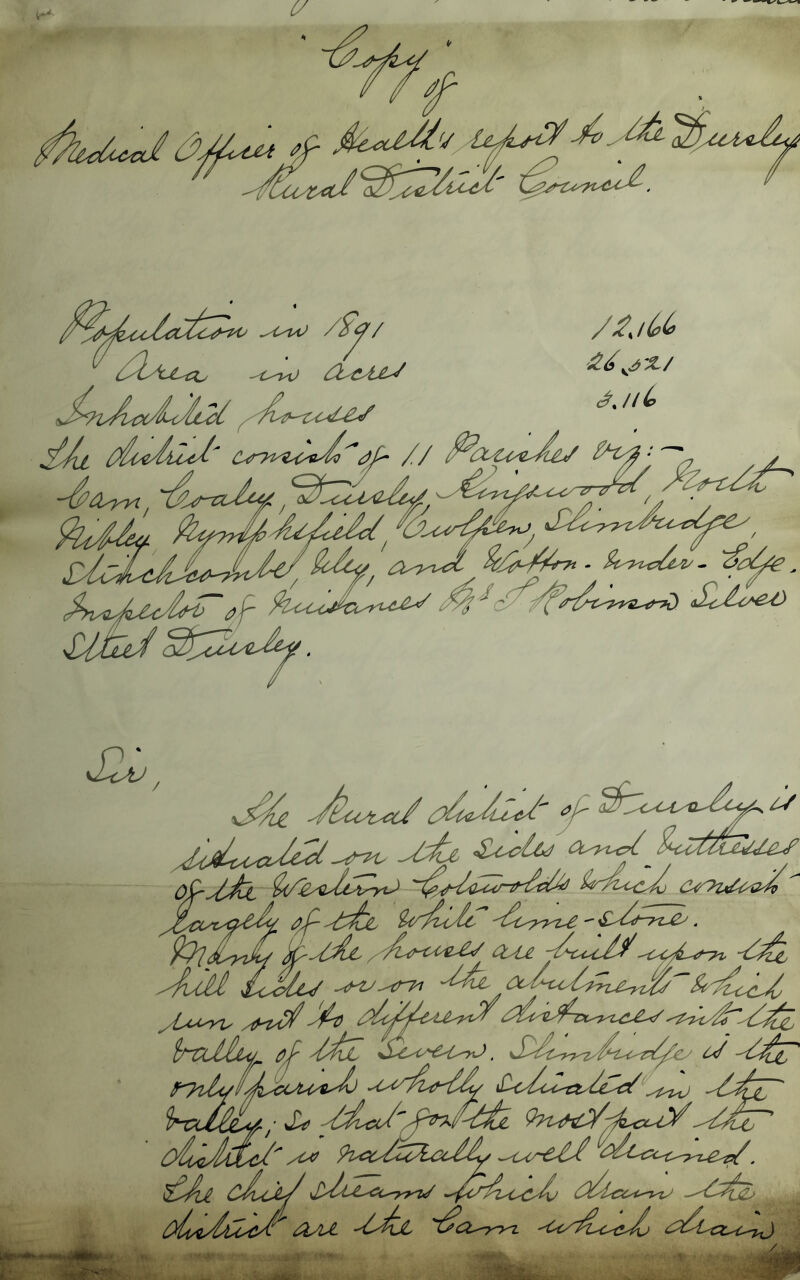 "Copy"
of
Medical Officer of Health's report to the Dursley
Rural District Council.
Population in 1891 12,166
Area in acres 26,521
Inhabited houses 3,116
The district consists of 11 Parishes viz:—
Cam, Coaley, Dursley, Kingswood, North
Nibley, Nymphsfield, Owlpen, Slimbridge,
Stinchcombe, Uley, and Wotton-Under-Edge.
Inspector of Nuisances Mr J Robinson Silver
Street Dursley.
Sir,
The Rural district of Dursley is
situated on the Sides and buttresses
of the Western Cotswolds which consist
largely of the white lime-stone.
Many of the houses are built upon the
hill sides or on the abutments which
run out to different distances into the
Valley of the Severn. Slimbridge is the
only parish wholly situated in the
Valley; so that for the most part the
district is naturally well drained.
The chief streams which drain the
district are the Cam which drain